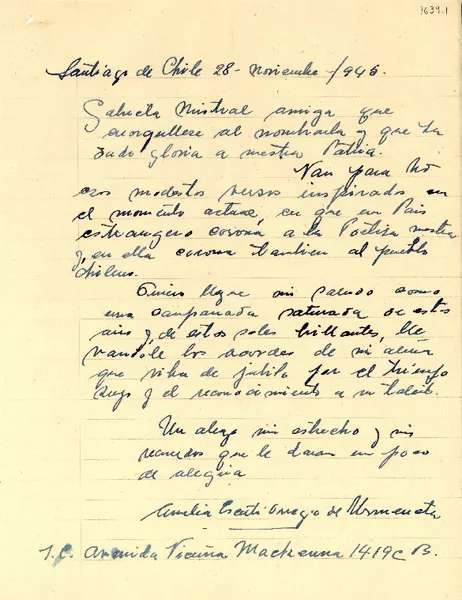 1639.1
Santiago de Chile 28 - Noviembre - /945.
Gabriela Mistral amiga que
enorgullese al nombrarla y que ha
dado gloria a nuestra Patria.
Van para Ud
esos modestos versos inspirados en
el momento actual, en que un Pais
estrangero corona a la Poetisa nuestra
y en ella corona tambien al pueblo
chileno.
Quiero llegue mi saludo como
una campanada saturada de estos
aires y de estos soles brillantes, lle
vandole los acordes de mi alma
que vibra de jubilo por el triunfo
suyo y el reconocimiento a su talento.
Un abrazo mi estrecho y mis
recuerdos que le daran un poco
de alegria
Amelia Escuti Orrego de Urmeneta
Avenida Vicuña Mackenna 1419 c B.